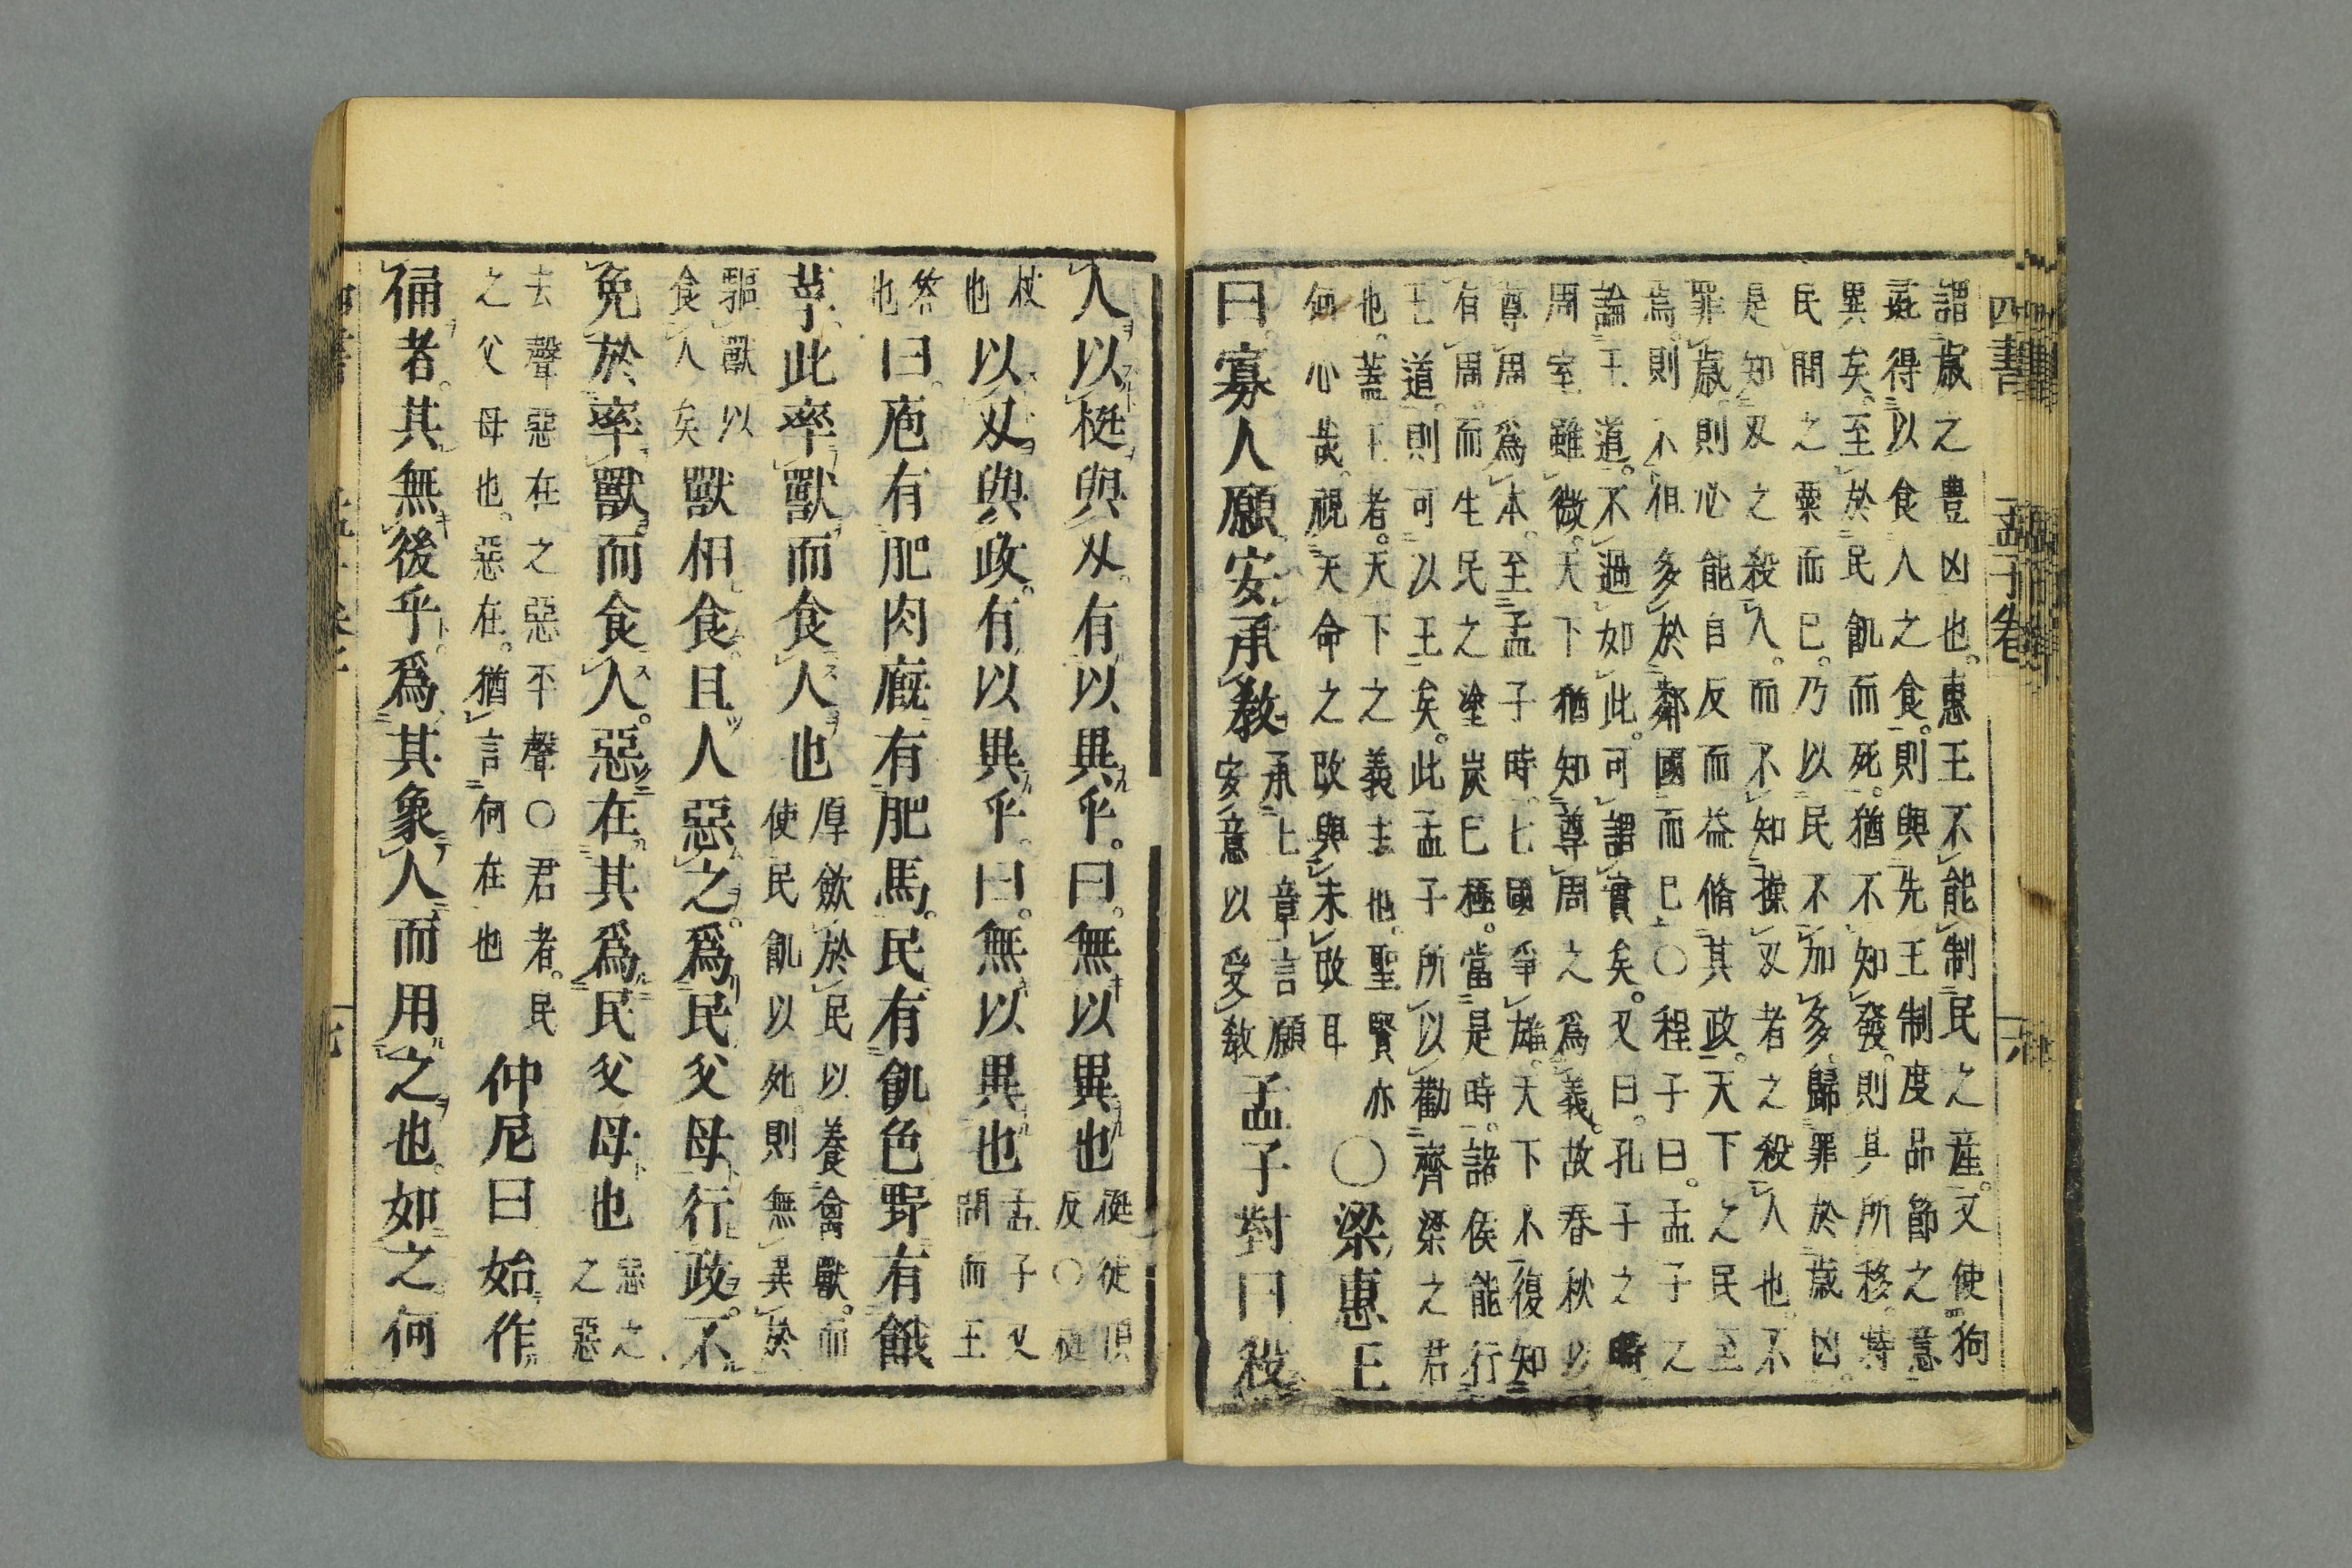 四書 孟子卷 六
謂歲之豊凶也。惠王不能制民之産。又使狗
彘得以食人之食。則與先王制度品節之意
異矣。至於民飢而死。猶不知發。則其所移。特
民間之粟而巳。乃以民不加多歸罪於歲凶。
是知刄之殺人。而不知操刄者之殺人也。不
罪歲則心能自反而益脩其政。天下之民至
焉。則不但多於鄰國而巳○程子曰。孟子之
論王道。不過如此。可謂實矣。又曰。孔子之時
周室雖微。天下猶知尊周之爲義。故春秋以
尊周爲本。至孟子時。七國爭雄。天下不復知
有周。而生民之塗炭巳極。當是時。諸侯能行
王道。則可以王矣。此孟子所以勸齊梁之君
也。蓋王者。天下之義主也。聖賢亦
何心哉。視天命之改與未改耳
○梁惠王
曰。寡人願安承敎
承上章言願
安意以受敎
孟子對曰殺
人以梃與刄。有以異乎。曰。無以異也
梃徒頂
反○梃
杖
也
以刄與政。有以異乎。曰。無以異也
孟子又
問而王
答
也
曰。庖有肥肉廐有肥馬。民有飢色野有餓
莩。此率獸而食人也
厚歛於民以養禽獸。而
使民飢以死。則無異於
驅獸以
食人矣
獸相食。且人惡之。爲民父母行政。不
免於率獸而食人。惡在其爲民父母也
惡之
之惡
去聲惡在之惡平聲○君者。民
之父母也。惡在。猶言何在也
仲尼曰始作
俑者。其無後乎。爲其象人而用之也。如之何